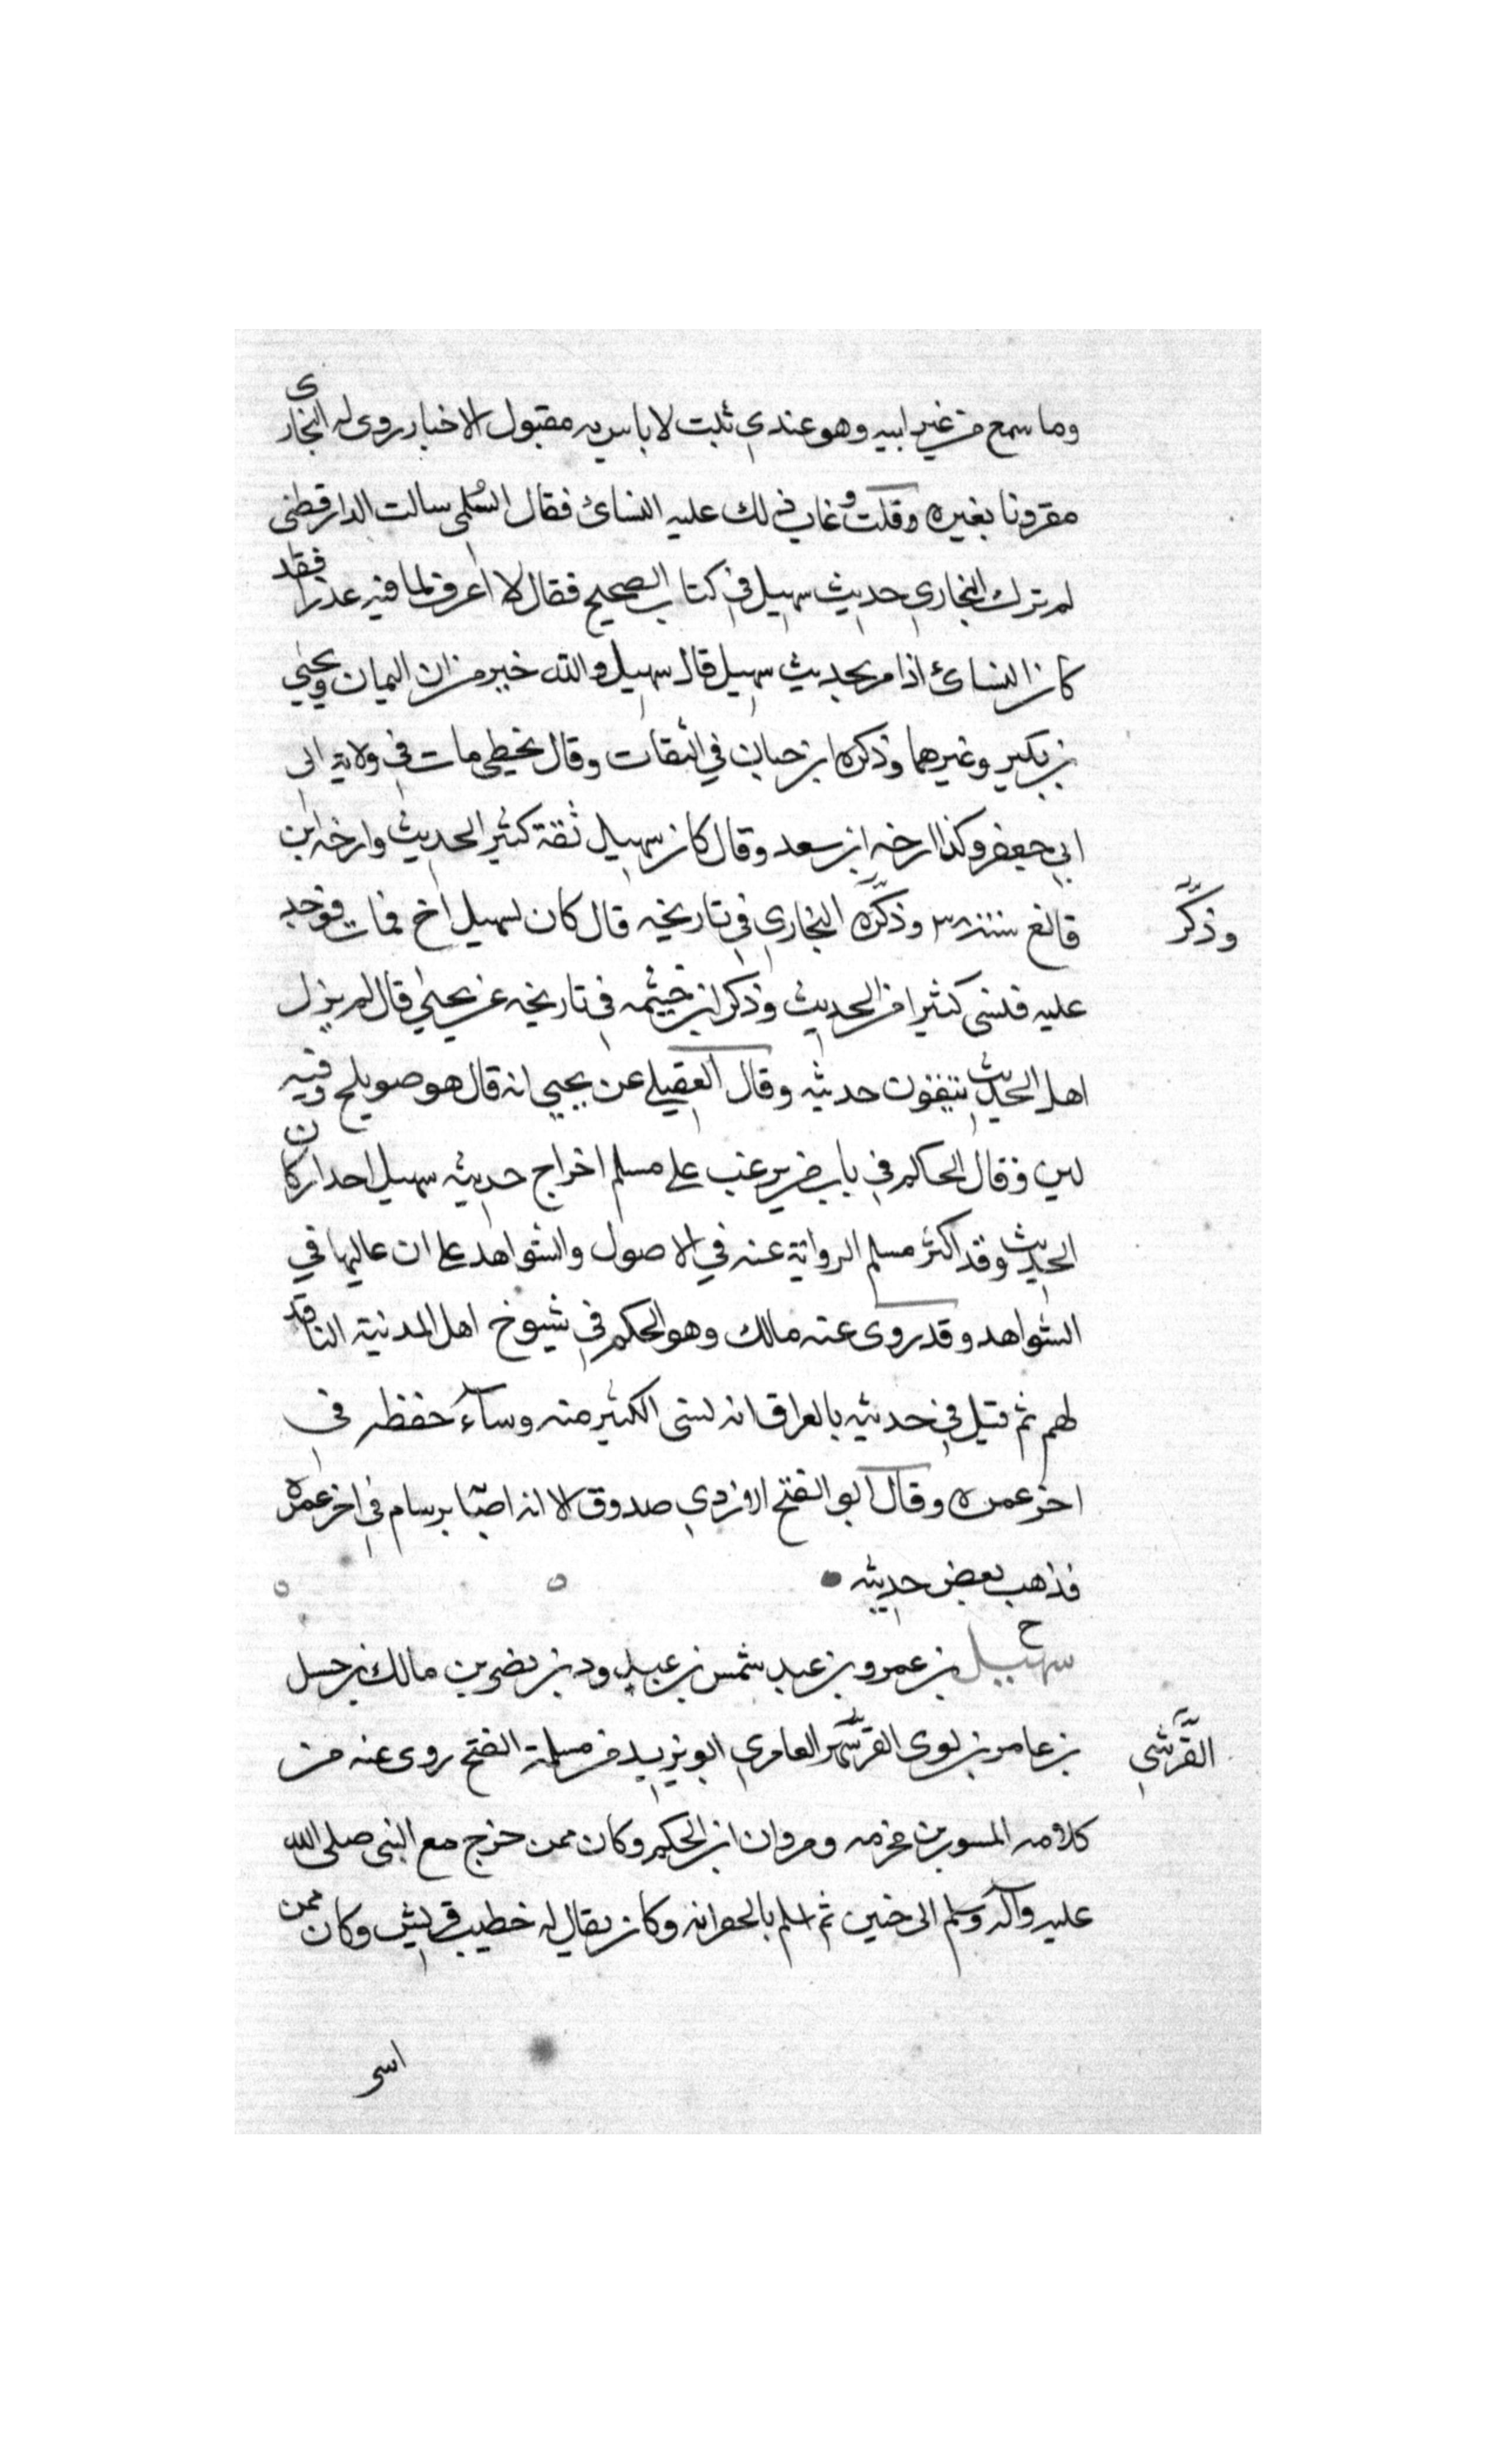 وما سمع من غير ابيه وهو عندي ثبت لا باس به مقبول الاخبار روى له البخارى
مقرونا بغيره وقلت وعاب ذلك عليه النسائ فقال السُلمى سالت الدارقطنى
لم ترك البخاري حديث سهيل في كتاب الصحيح فقال لا اعرف لما فيه عذرا فقد
كان النسائ اذا مر بحديث سهيل قال سهيل والله خير من ان اليمان ويحيٰي
بن بكير وغيرهما وذكره ابن حبان في الثقات وقال يخطى مات في ولاية ابى
ابي جعفر وكذا ارخه ابن سعد وقال كان سهيل ثقة كثير الحديث وارخه ابن
قانع سنة ٣٨ وذكّره البخاري في تاريخه قال كان لسهيل اخ فمات فوجد
وذكَّر
عليه فنسى كثيرا من الحديث وذكر ابن خيثمه في تاريخه عن يحيٰي قال لم يزل
اهل الحديث يتقون حديثه وقال العقيلي عن يحيي انه قال هو صويلح وفيه
لين وقال الحاكم في باب من عيب على مسلم اخراج حديثه سهيل احد اركان
الحديث وقد اكثر مسلم الرواية عنه في الاصول والشواهد على ان عاليها في
الشواهد وقد روى عنه مالك وهو الحكم في شيوخ اهل المدنية الناقد
لهم ثم قيل في حديثه بالعراق انه نسى الكثير منه وسآء حفظه في
اخر عمره وقال ابو الفتح الازدي صدوق الا انه اصبا برسام في اخر عمره
فذهب بعض حديثه
سهيل بن عمرو بن عبد شمس بن عبد ود بن نضر بن مالك بن حسل
بن عامر بن لوى القرشى العامري ابو يزيد من مسلمة الفتح روى عنه من
القَّرشي
كلامه المسور بن مخرمه ومروان ابن الحكم وكان ممن خرج مع النبى صلى الله
عليه وآله وسلم الى حنين ثم اسلم بالجعرانه وكان يقال له خطيب قريش وكان ممن
اسر